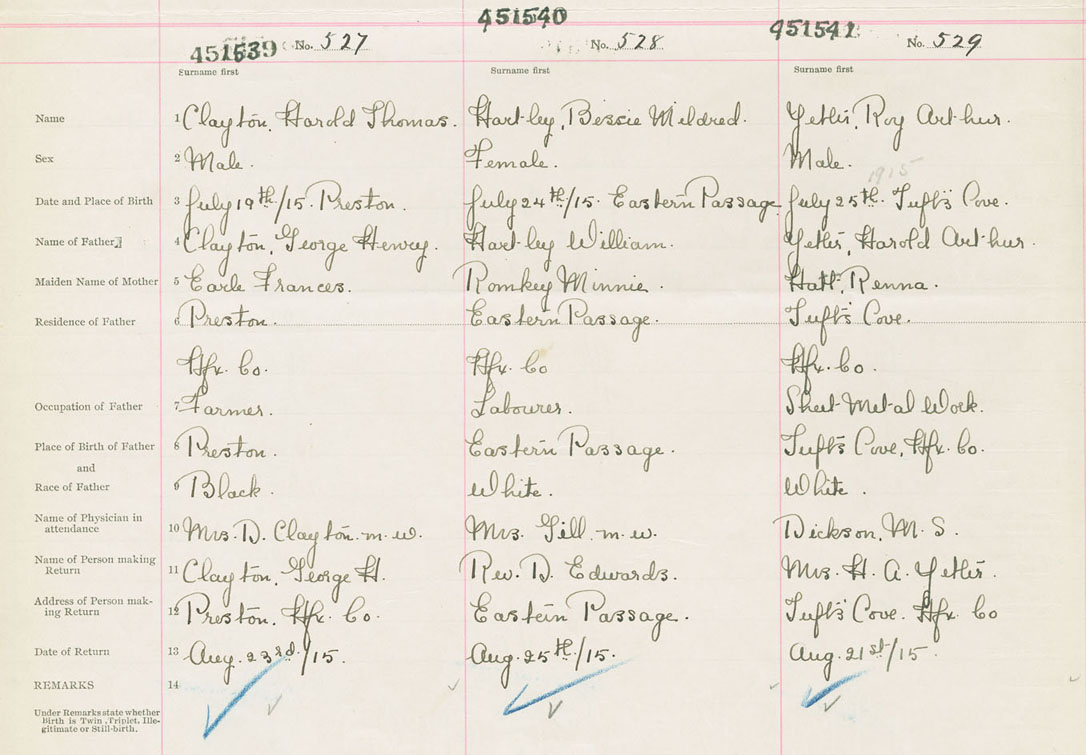 451539 No. 527 451540 No. 528 451541 No. 529
Surname first Surname first Surname first
Name 1 Clayton, Harold Thomas. Hartley, Bessie Mildred. Yetter, Roy Arthur.
Sex 2 Male. Female. Male.
1915
Date and Place of Birth 3 July 19th/15. Preston. July 24th/15. Eastern Passage July 25th. Tuft's Cove.
Name of Father 4 Clayton, George Henry. Hartley William. Yetter, Harold Arthur.
Maiden Name of Mother 5 Earle Frances. Romkey Minnie. Hatt, Renna.
Residence of Father 6 Preston. Eastern Passage. Tuft's Cove.
Hfx. Co. Hfx. Co Hfx. Co.
Occupation of Father 7 Farmer. Labourer. Sheet Metal Work.
Place of Birth of Father 8 Preston. Eastern Passage. Tuft's Cove, Hfx. Co.
and
Race of Father 9 Black. White. White.
Name of Physician in
attendance 10 Mrs. D. Clayton. m. w. Mrs. Gill. m. w. Dickson, M. S.
Name of Person making
Return 11 Clayton, George H. Rev. D. Edwards. Mrs. H. A. Yetter.
Address of Person mak-
ing Return 12 Preston, Hfx. Co. Eastern Passage. Tuft's Cove. Hfx. Co
Date of Return 13 Aug. 23rd/15. Aug. 25th/15. Aug. 21st/15.
REMARKS 14
Under Remarks state whether
Birth is Twin, Triplet, Ille-
gitimate or Still-birth.